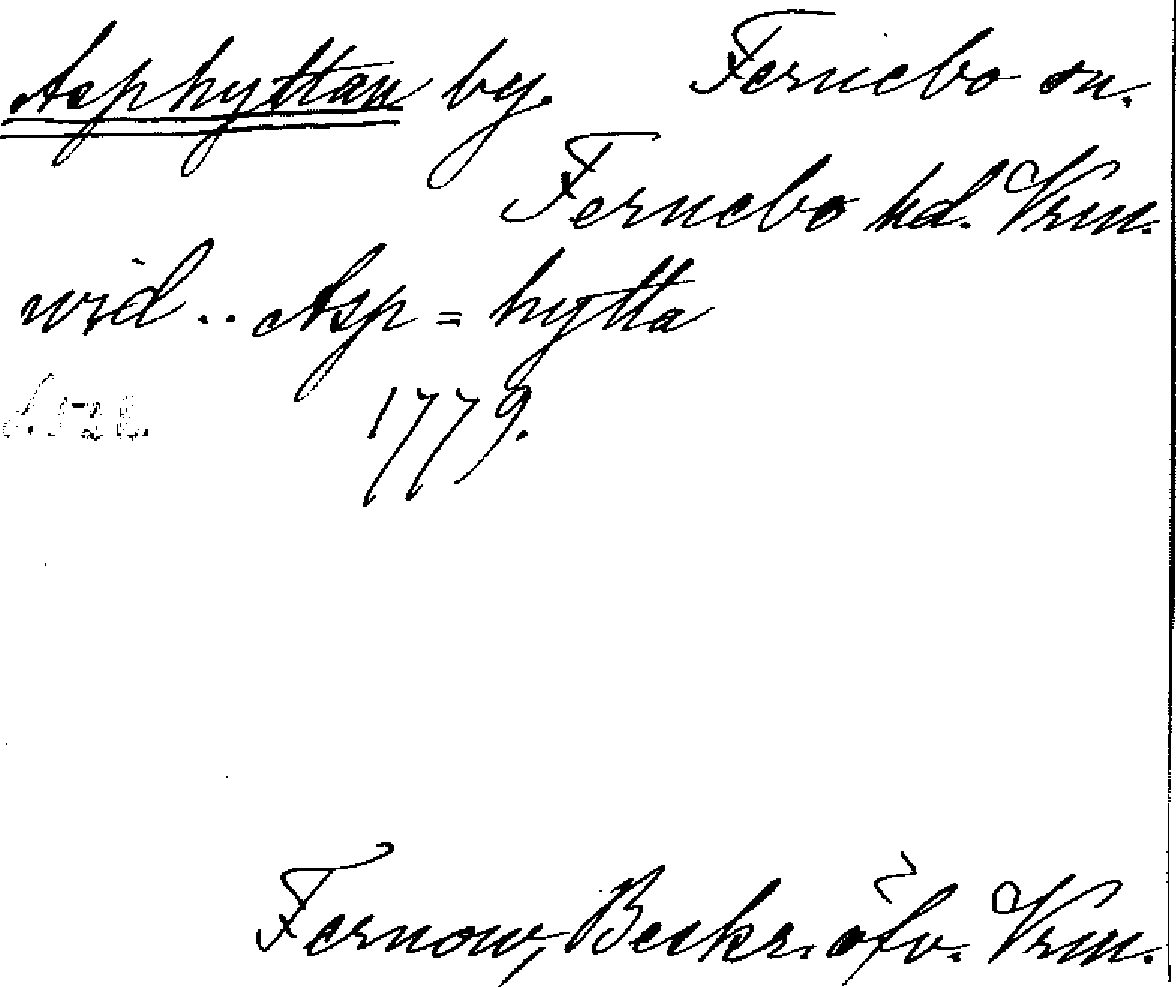 Asphyttan by. Fernebo sn.
Fernebo hd. Vrm.
wid .. Asp = hytta
1779.
Fernow, Beskr. öfv. Vrm.